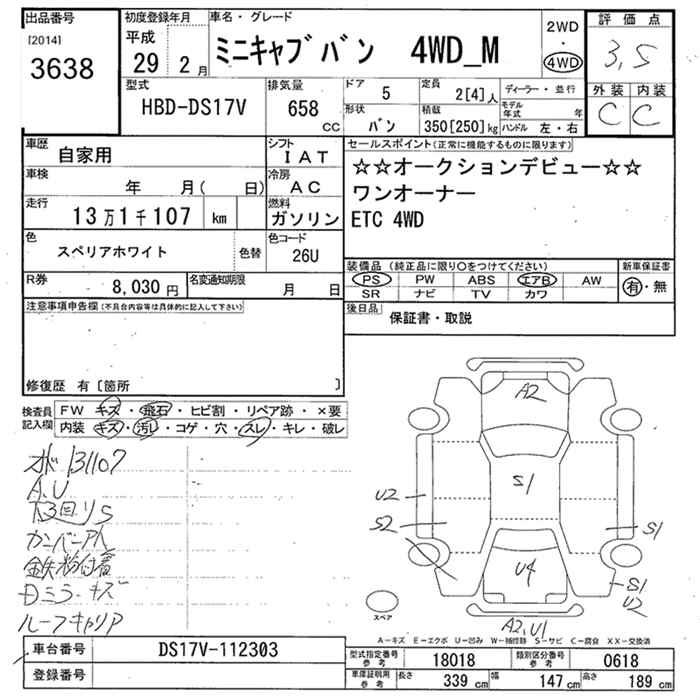 出品番号 初度登録年月 車名・グレード 2WD 評価点
[2014] 平成 ミニキャブバン 4WD_M ・ 3,5
3638 29 2月 4WD 外装 内装
型式 排気量 ドア 5 定員 2[4]人 ディーラー・並行 C C
HBD-DS17V 658 cc 形状 バン 積載 350[250]kg モデル年式 年
ハンドル 左・右
車歴 自家用 シフト IAT セールスポイント(正常に機能するものに限ります)
車検 年 月( 日) 冷房 AC ☆☆オークションデビュー☆☆
走行 13万1千107 km 燃料 ガソリン ワンオーナー
ETC 4WD
色 スペリアホワイト 色替 色コード 26U
装備品(純正品に限り○をつけてください) 新車保証書
R券 8,030円 名変通知期限 月 日 PS PW ABS エアB AW 有・無
SR ナビ TV カワ
注意事項申告欄(不具合内容等は具体的に記入して下さい) 後日品 保証書・取説
修復歴 有[箇所 ]
検査員記入欄 FW キズ・飛石・ヒビ割・リペア跡・×要
内装 キズ・汚レ・コゲ・穴・スレ・キレ・破レ
A2
ポ 131107
A,U
下回りS
S1
U2
S2 S1
鉄粉付着
Dミラーキズ
U4 S1
U2
ルーフキャリア
スペア
A2,U1
A-キズ E-エクボ U-凹み W-補修跡 S-サビ C-腐食 XX-交換済
車台番号 DS17V-112303 型式指定番号参考 18018 類別区分番号参考 0618
登録番号 車庫証明用参考 長さ 339 cm 幅 147 cm 高さ 189 cm